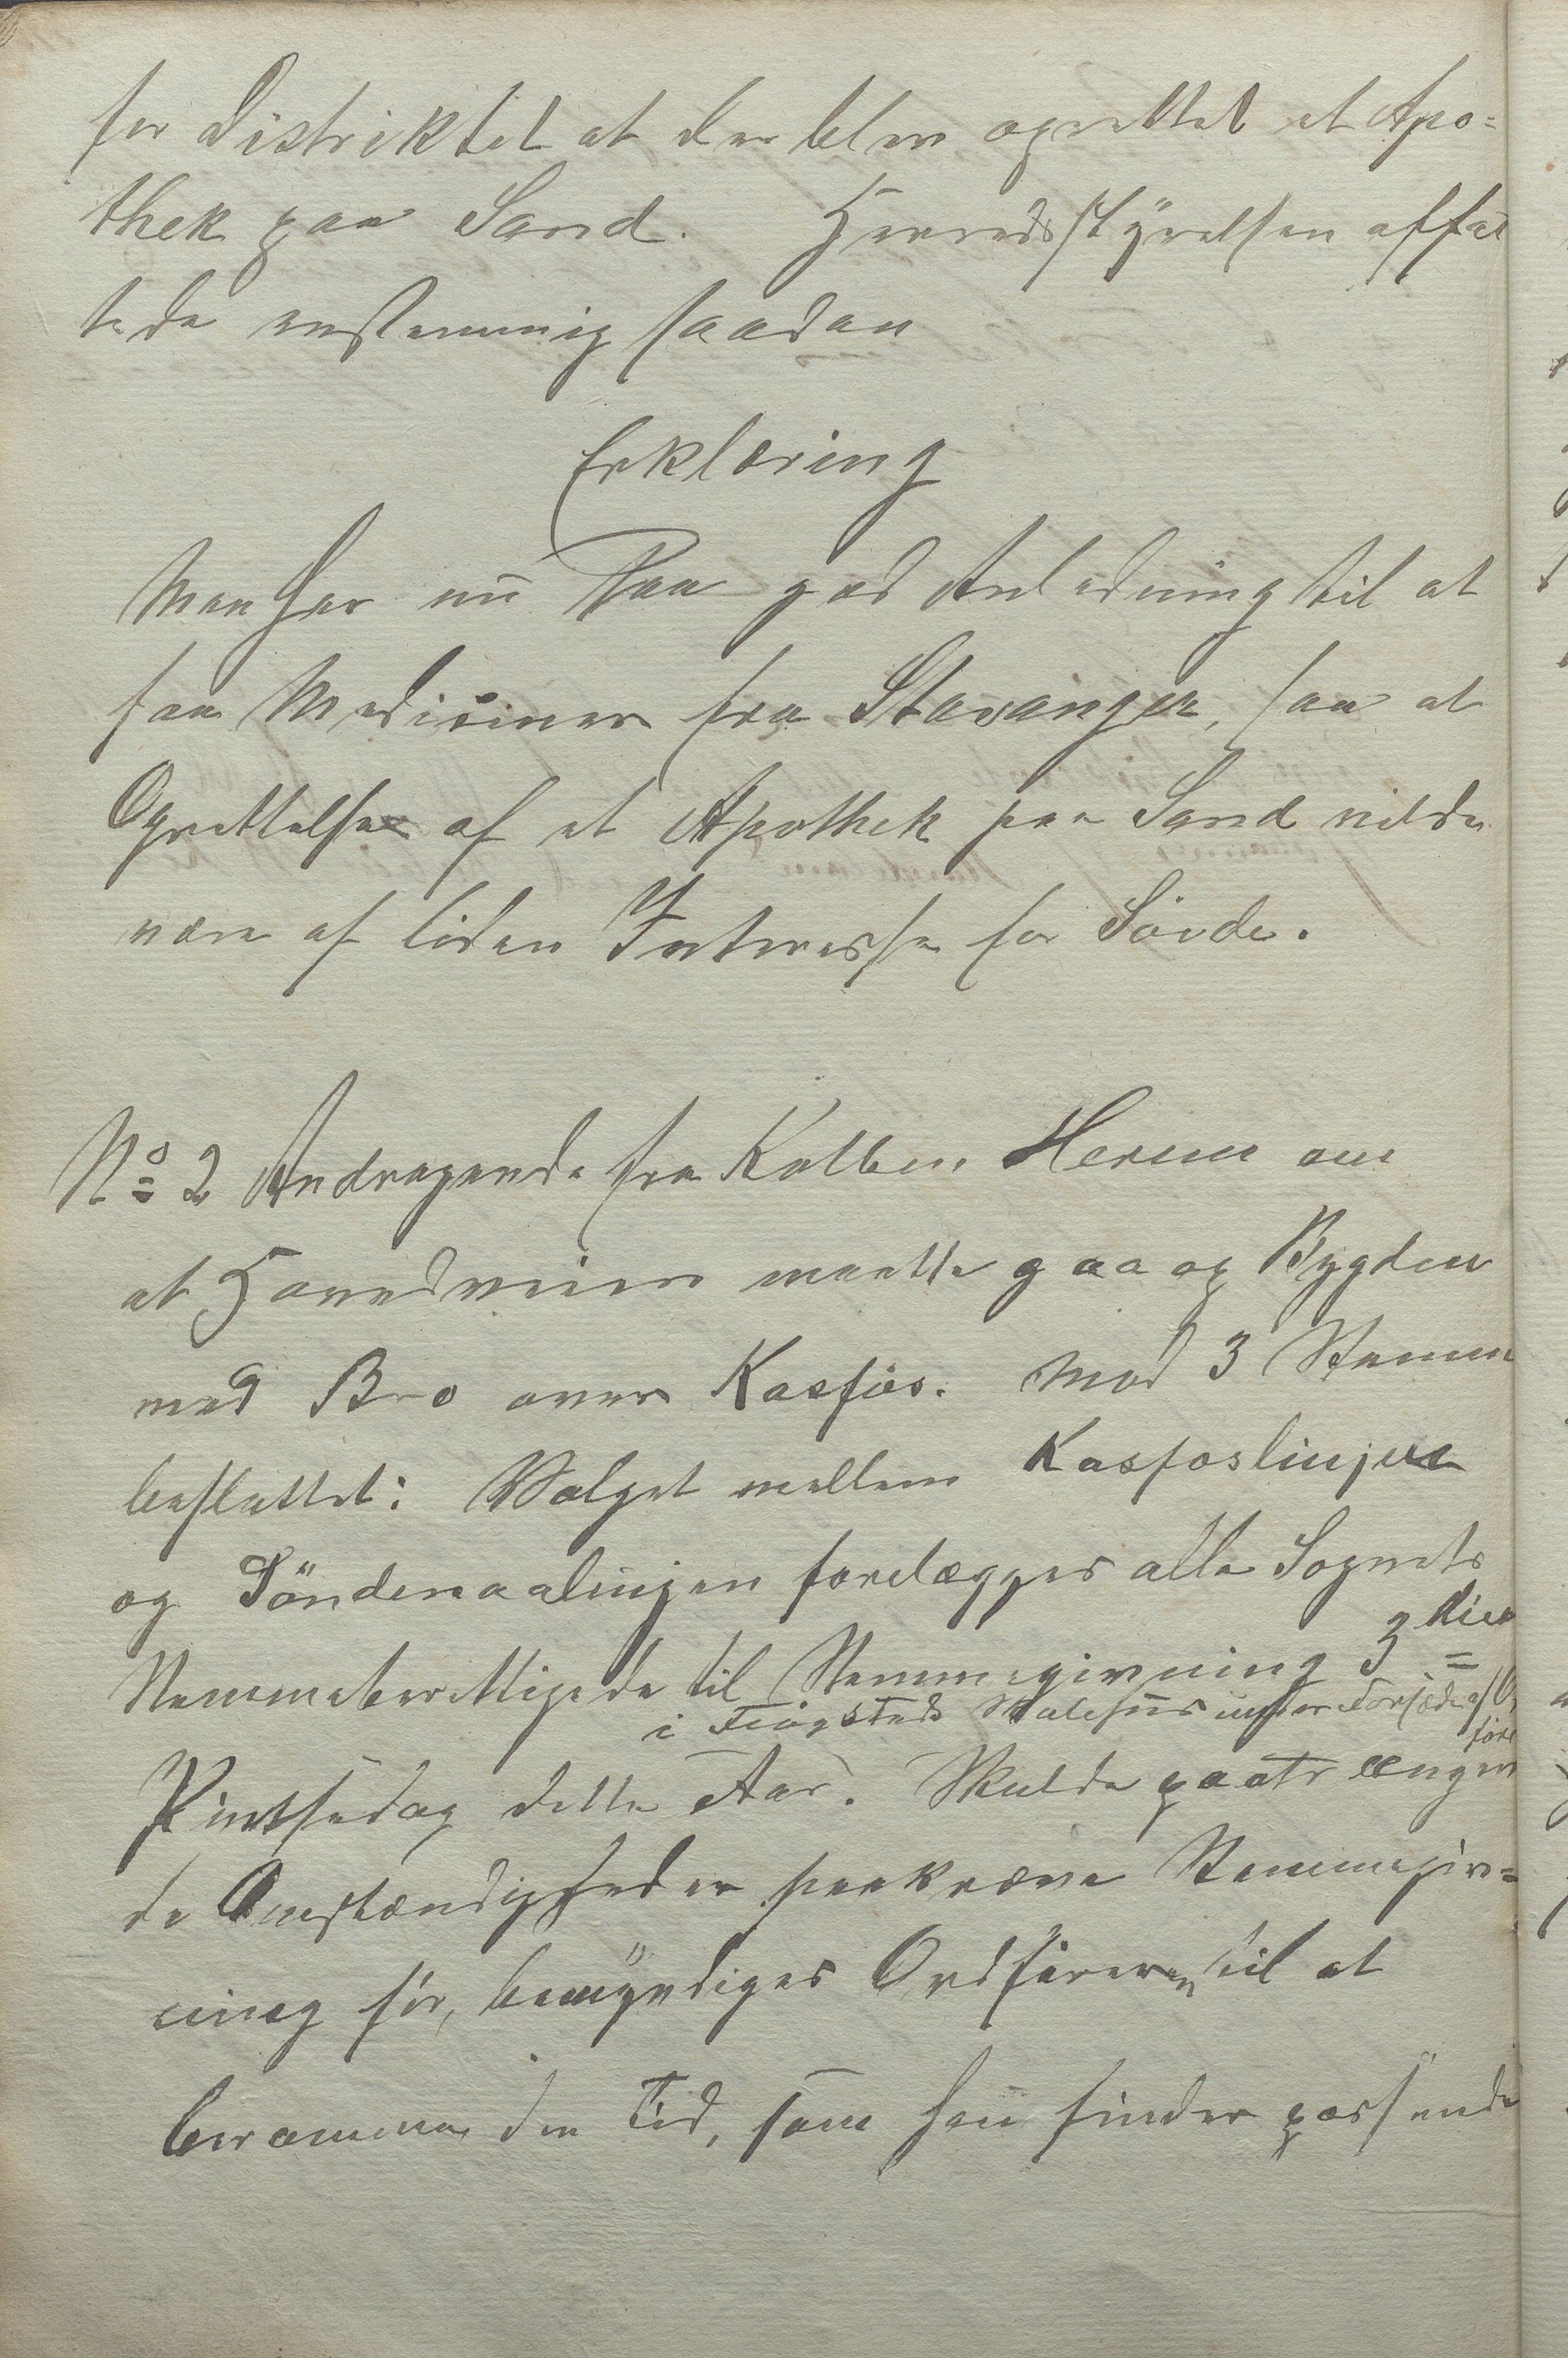 for Distriktet at der blev oprettet et Apo=
thek paa Sand. Herredsstyrelsen affat
tede enstemmig saadan
Erklæring
Man har nu saa god Anledning til at
faa Medisiner fra Stavanger, saa at
Oprettelse af et Apothek paa Sand vilde
være af liden Interesse for Søvde.
No 2 Andragende fra Kolben Herum om
at Hovedveien maatte gaa op Bygden
med Bro over Kasfos. Mod 3 Stemm
besluttet: Valget mellem Kasfoslinjen
og Tøndenaalinjen forelægges alle Sognets
Stemmeberettigede til Stemmegivning 3die
i Fiogstads Skolehus under Forsæde af O
føre
Pintsedag dette Aar. Skulde paatrængen
de Omstændigheder paakræve Stemmegiv=
ning før, bemyndiges Ordføreren til at
beramme den Tid, som han finder passende